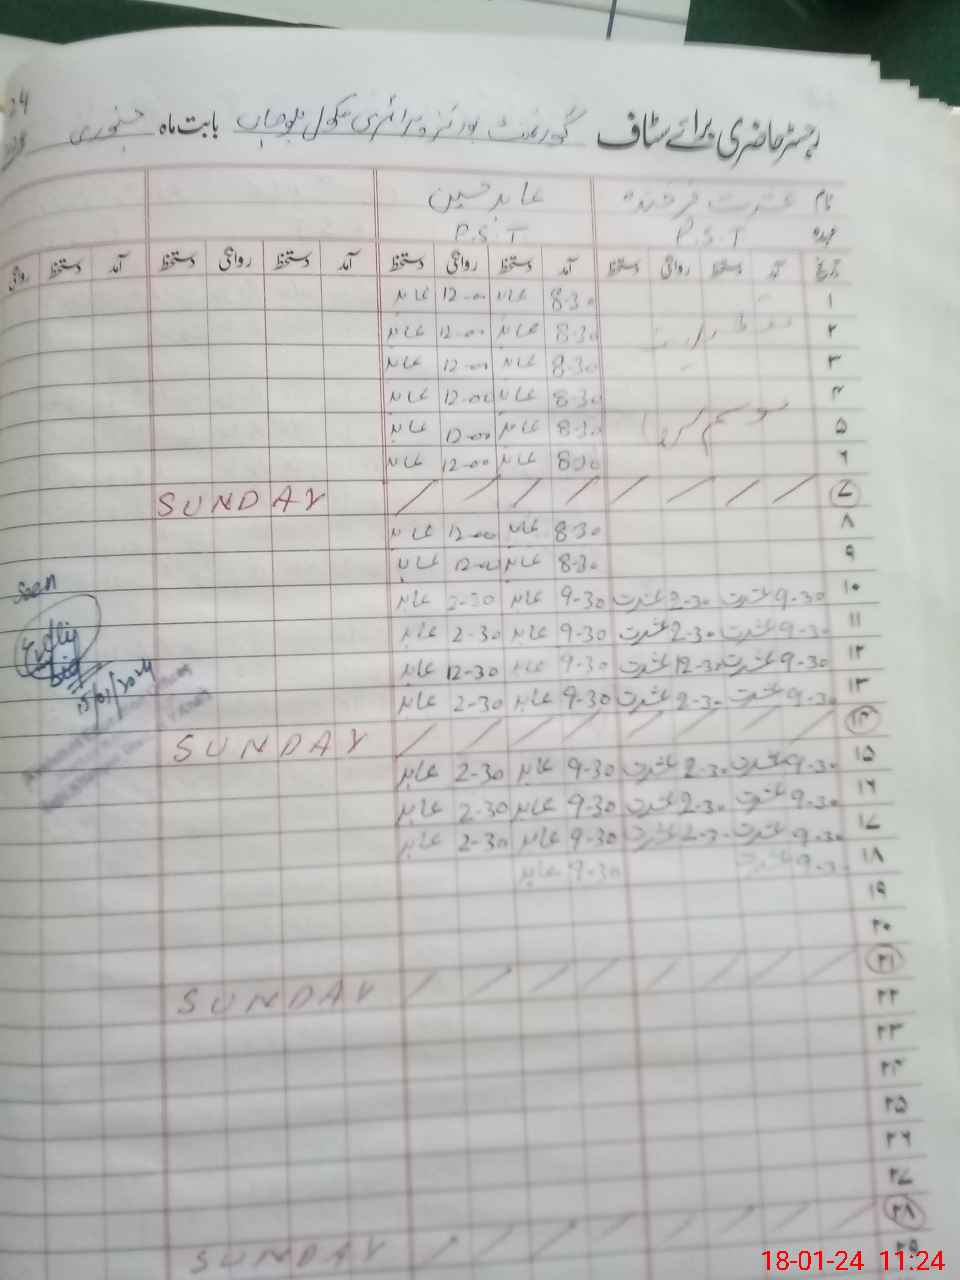 رجسٹر حاضری برائے سٹاف گورنمنٹ بوائز پرائمری سکول بابت ماہ جنوری
نام عشرت عابد حسین
عہدہ P.S.T P.S.T
تاریخ آمد دستخط روانگی دستخط آمد دستخط روانگی دستخط آمد دستخط روانگی دستخط آمد دستخط روانگی
۱ 8-30 عابد 12-00 عابد
۲ 8-30 عابد 12-00 عابد
۳ 8-30 عابد 12-00 عابد
۴ 8-30 عابد 12-00 عابد
۵ موسم گرما 8-30 عابد 12-00 عابد
۶ 8-30 عابد 12-00 عابد
۷ / / / / / / / / SUNDAY
۸ 8-30 عابد 12-00 عابد
۹ 8-30 عابد 12-00 عابد
۱۰ 9-30 عشرت 2-30 عشرت 9-30 عابد 2-30 عابد
Seen
۱۱ 9-30 عشرت 2-30 عشرت 9-30 عابد 2-30 عابد
۱۲ 9-30 عشرت 12-30 عشرت 9-30 عابد 12-30 عابد
15/01/2024
۱۳ 9-30 عشرت 2-30 عشرت 9-30 عابد 2-30 عابد
۱۴ / / / / / / / / SUNDAY
۱۵ 9-30 عشرت 2-30 عشرت 9-30 عابد 2-30 عابد
۱۶ 9-30 عشرت 2-30 عشرت 9-30 عابد 2-30 عابد
۱۷ 9-30 عشرت 2-30 عشرت 9-30 عابد 2-30 عابد
۱۸ 9-30 عشرت 9-30 عابد
۱۹
۲۰
۲۱ / / / / / / / / SUNDAY
۲۲
۲۳
۲۴
۲۵
۲۶
۲۷
۲۸ / / / / / / / / SUNDAY
۲۹
18-01-24 11:24